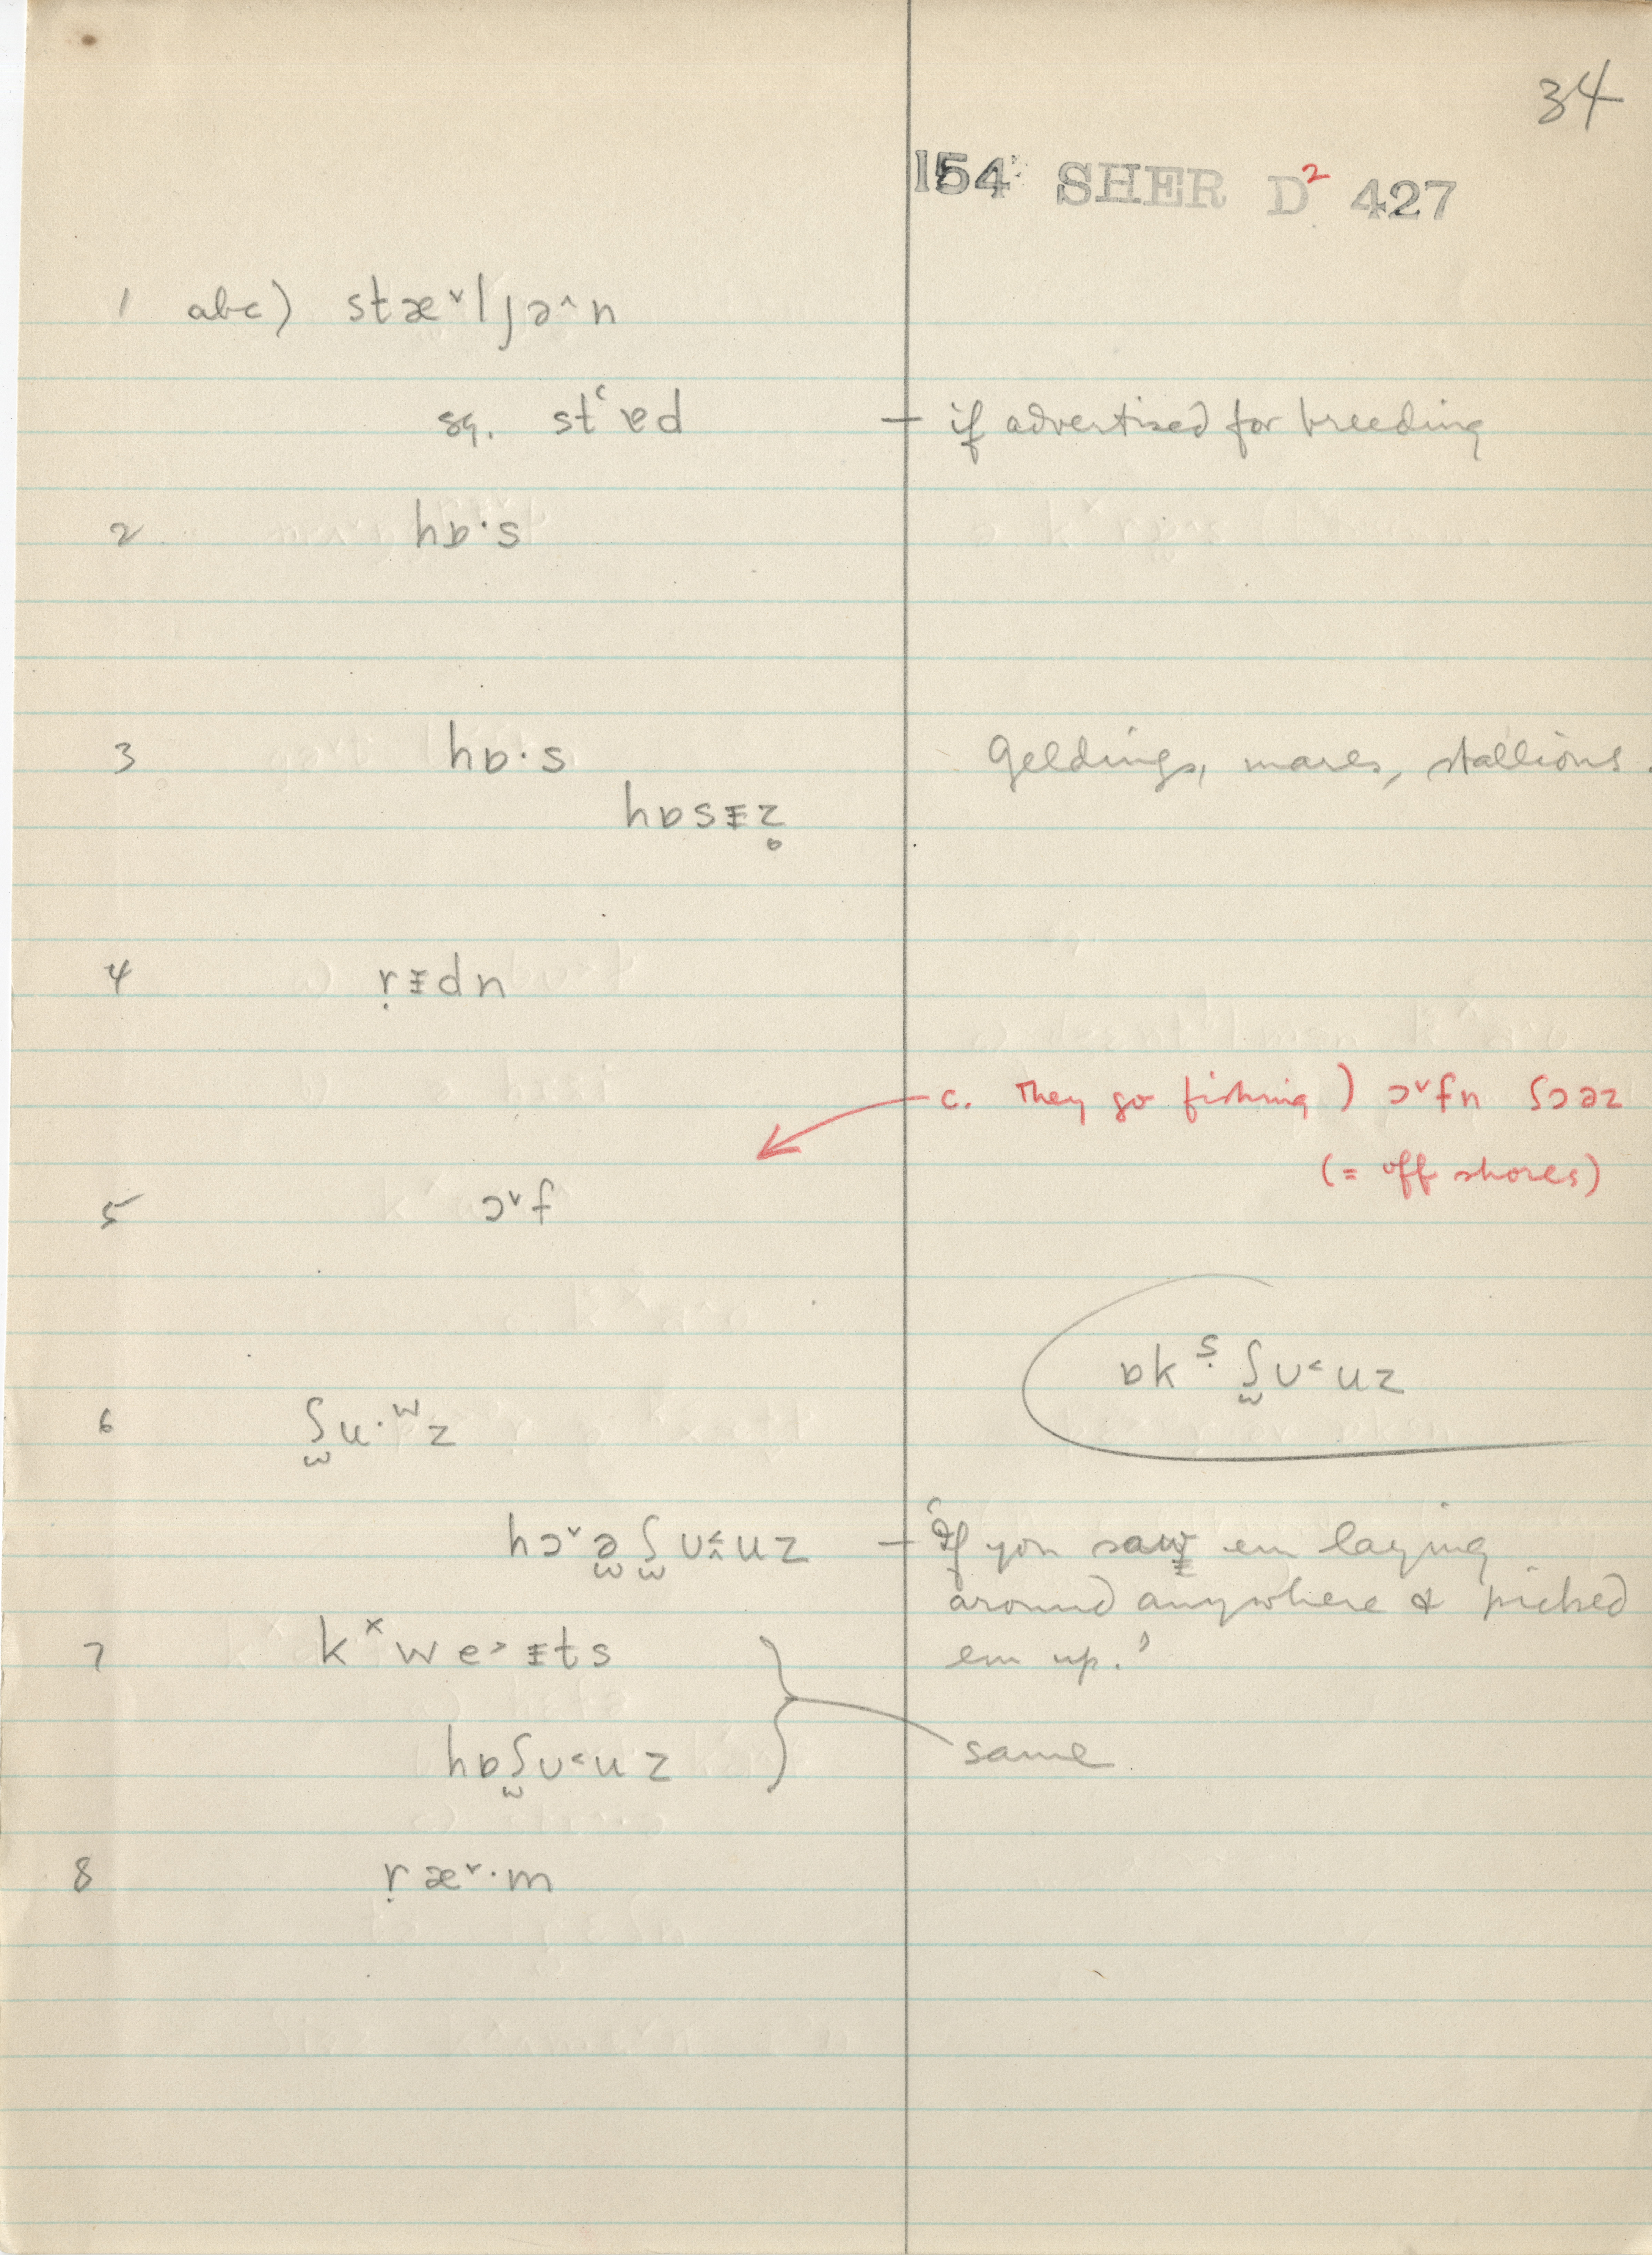 34
154 SHER D² 427
1 abc) stæ˅lȷə^n
sq. stʿɐd — if advertised for breeding
2 hɒ·s
3 hɒ·s Geldings, mares, stallions.
hɒsᵻz̥
4 ṛᵻdn
c. They go fishing) ɔ˅fn ʃɔəz
(= off shores)
5 ɔ˅f
ɒkˢ̣ ʃ̫ʊ˂uz
6 ʃ̫u·ʷz
hɔ˅ə̫ʃ̫ʊ˂̭uz — 'If you saw em laying
around anywhere & picked
7 kˣwe˃ᵻts em up.'
hɒʃ̫ʊ˂uz same
8 ṛæ˅·m